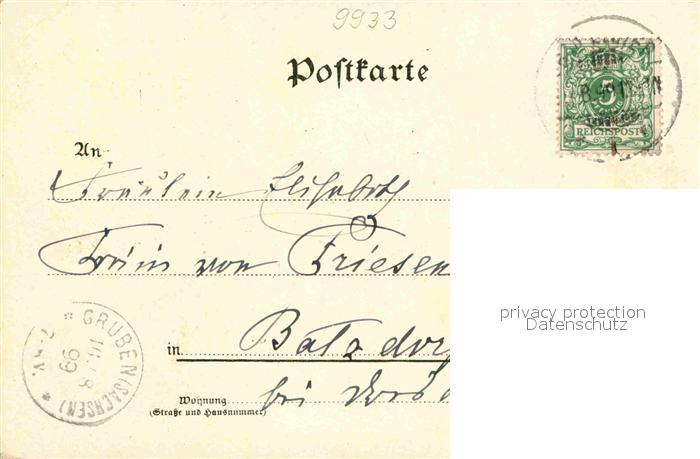 9933
Postkarte
5
REICHSPOST
An
Fräulein Elisabeth
von Friesen
privacy protection
Datenschutz
GRUBEN (SACHSEN)
99
in Batzdorf
Wohnung
(Straße und Hausnummer)
bei